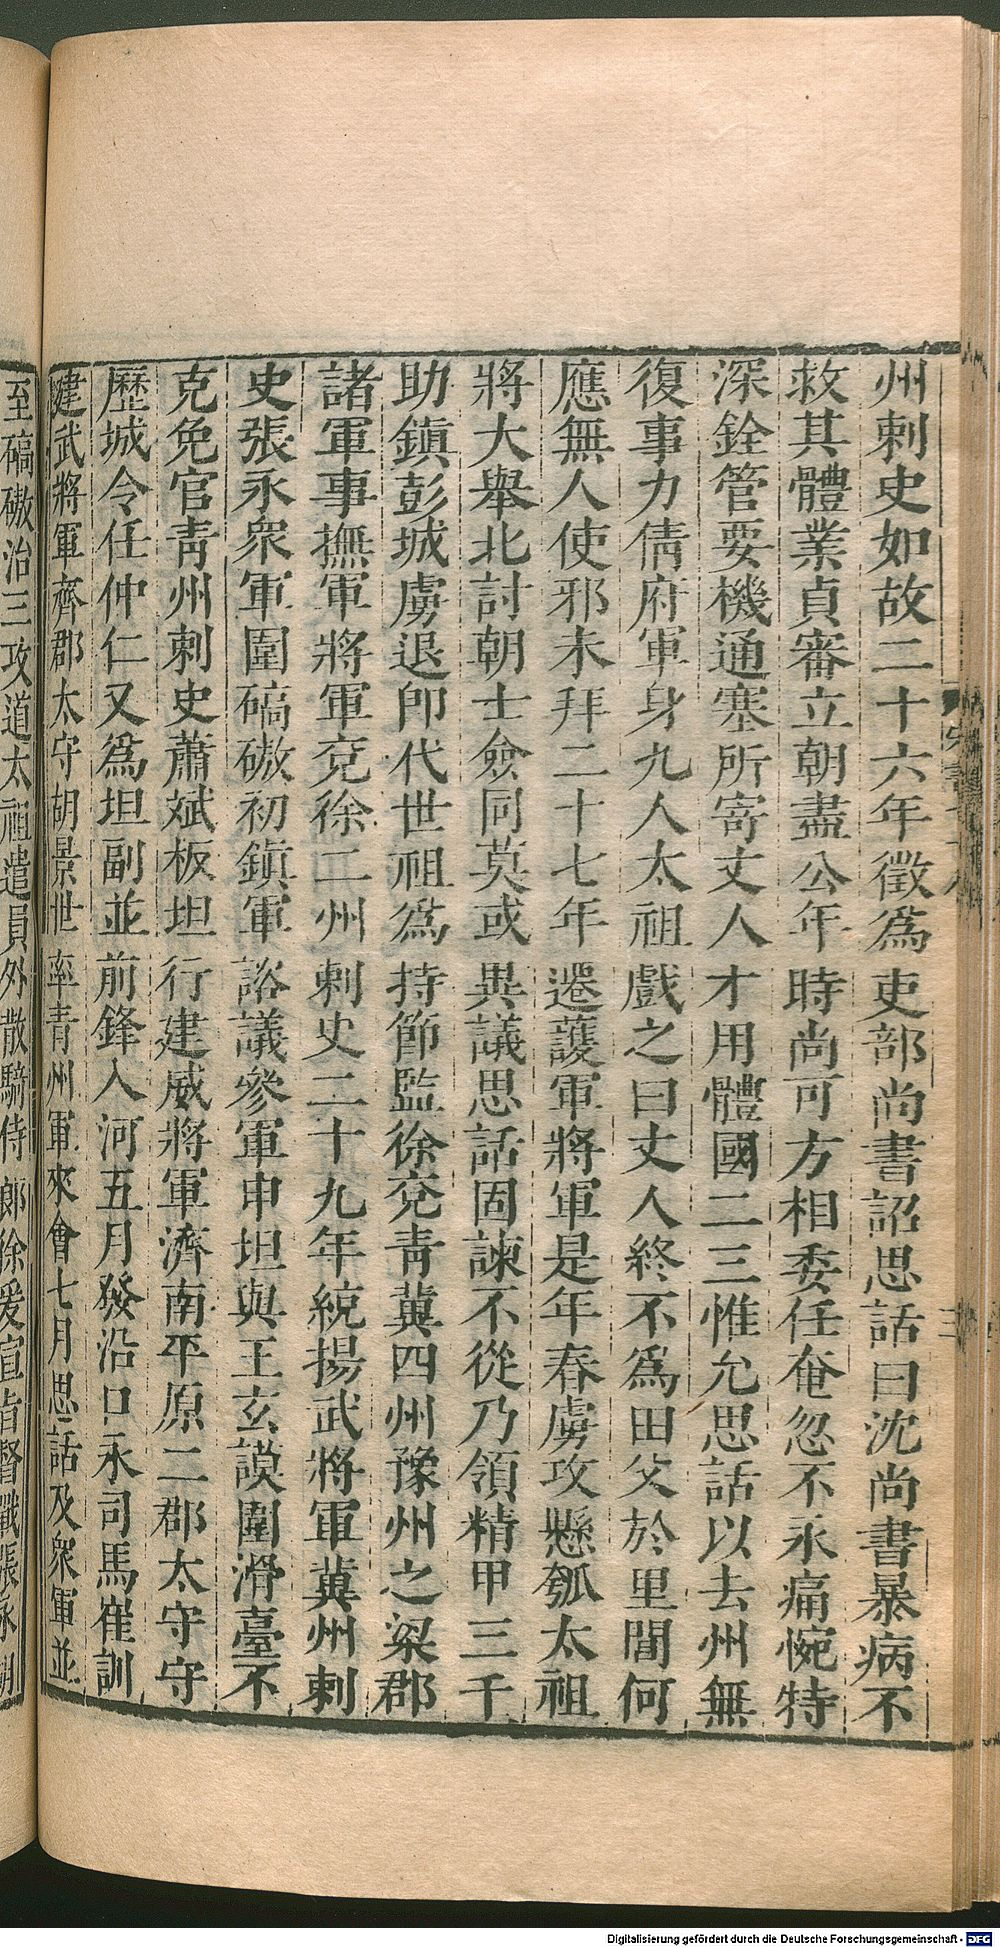 州刺史如故二十六年徵爲吏部尚書詔思話曰沈尚書暴病不
救其體業貞審立朝盡公年時尚可方相委任奄忽不永痛惋特
深銓管要機通塞所寄丈人才用體國二三惟允思話以去州無
復事力倩府軍身九人太祖戲之曰丈人終不爲田父於里閭何
應無人使邪未拜二十七年遷護軍將軍是年春虜攻懸瓠太祖
將大舉北討朝士僉同莫或異議思話固諫不從乃領精甲三千
助鎮彭城虜退即代世祖爲持節監徐兗青冀四州豫州之梁郡
諸軍事撫軍將軍兗徐二州刺史二十九年統揚武將軍冀州刺
史張永衆軍圍碻磝初鎮軍諮議參軍申坦與王玄謨圍滑臺不
克免官青州刺史蕭斌板坦行建威將軍濟南平原二郡太守守
歷城令任仲仁又爲坦副並前鋒入河五月發沿口永司馬崔訓
建武將軍齊郡太守胡景世率青州軍來會七月思話及衆軍並
至碻磝治三攻道太祖遣員外散騎侍郎徐爰宣旨督戰張永胡
Digitalisierung gefördert durch die Deutsche Forschungsgemeinschaft - DFG